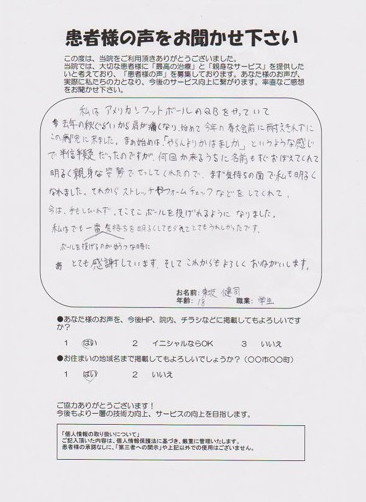 患者様の声をお聞かせ下さい
この度は、当院をご利用頂きありがとうございました。
当院では、大切な患者様に「最高の治療」と「親身なサービス」を提供した
いと考えており、「患者様の声」を募集しております。あなた様のお声が、
実際に私たちの力となり、今後のサービス向上に繋がります。率直なご感想
をお聞かせ下さい。
私はアメリカンフットボールのQBをやっていて
去年の秋ぐらいから肩が痛くなり、始めて今年の春大会前に耐えきれずに
この病院に来ました。まぁ始めは、「やらんよりかはましか」というような感じ
で半信半疑だったのですが、何回か来るうちに名前もすぐおぼえてくれて
明るく親身な姿勢でやしてくれたので、まず気持ちの面で私も明るく
なれました。それからストレッチやフォームチェックなどをしてくれて、
今は、手もしびれず、そこそこボールを投げれるようになりました。
私はでも一番気持ちを明るくしてもらえてとてもうれしかったです。
ボールを投げるのがおっくうな時に
とても感謝しています。そしてこれからもよろしくおねがいします。
お名前: 健司
年齢: 18 職業: 学生
●あなた様のお声を、今後HP、院内、チラシなどに掲載してもよろしいです
か?
1 はい 2 イニシャルならOK 3 いいえ
●お住まいの地域名まで掲載してもよろしいでしょうか?(〇〇市〇〇町)
1 はい 2 いいえ
ご協力ありがとうございます!
今後もより一層の技術力向上、サービスの向上を目指します。
「個人情報の取り扱いについて」
ご記入頂いた内容は、個人情報保護法に基づき、厳重に管理いたします。
患者様の承諾なしに、「第三者への開示」や上記以外での使用はございません。